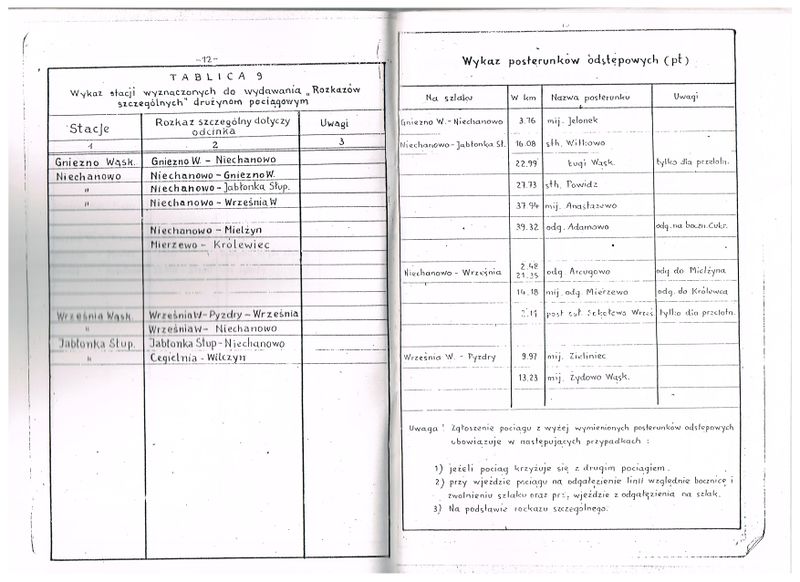 -12-
TABLICA 9
Wykaz stacji wyznaczonych do wydawania „Rozkazów
szczególnych" drużynom pociągowym
Stacje
Rozkaz szczególny dotyczy
odcinka
Uwagi
1 2 3
Gniezno Wąsk. Gniezno W. - Niechanowo
Niechanowo Niechanowo - Gniezno W.
" Niechanowo - Jabłonka Słup.
" Niechanowo - Września W
Niechanowo - Mielżyn
Mierzewo - Królewiec
Września Wąsk. Września W - Pyzdry - Września
" Września W - Niechanowo
Jabłonka Słup. Jabłonka Słup - Niechanowo
" Cegielnia - Wilczyn
Wykaz posterunków odstępowych (pt)
Na szlaku W km Nazwa posterunku Uwagi
Gniezno W. - Niechanowo 3.76 mij. Jelonek
Niechanowo - Jabłonka Sł. 16.08 sth. Witkowo
22.99 Ługi Wąsk. tylko dla przeładn.
27.73 sth. Powidz
37.94 mij. Anastazewo
39.32 odg. Adamowo odg. na boczn. Cukr.
Niechanowo - Września 2.48
21.35 odg. Arcugowo odg do Mielżyna
14.18 mij. odg. Mierzewo odg. do Królewca
Sokołowo Wrześ. tylko dla przeładn.
Września W. - Pyzdry 9.97 mij. Zieliniec
13.23 mij. Żydowo Wąsk.
Uwaga! Zgłoszenie pociągu z wyżej wymienionych posterunków odstępowych
obowiązuje w następujących przypadkach :
1) jeżeli pociąg krzyżuje się z drugim pociągiem.
2) przy wjeździe pociągu na odgałęzienie linii względnie bocznicę i
zwolnieniu szlaku oraz przy wjeździe z odgałęzienia na szlak.
3) Na podstawie rozkazu szczególnego.